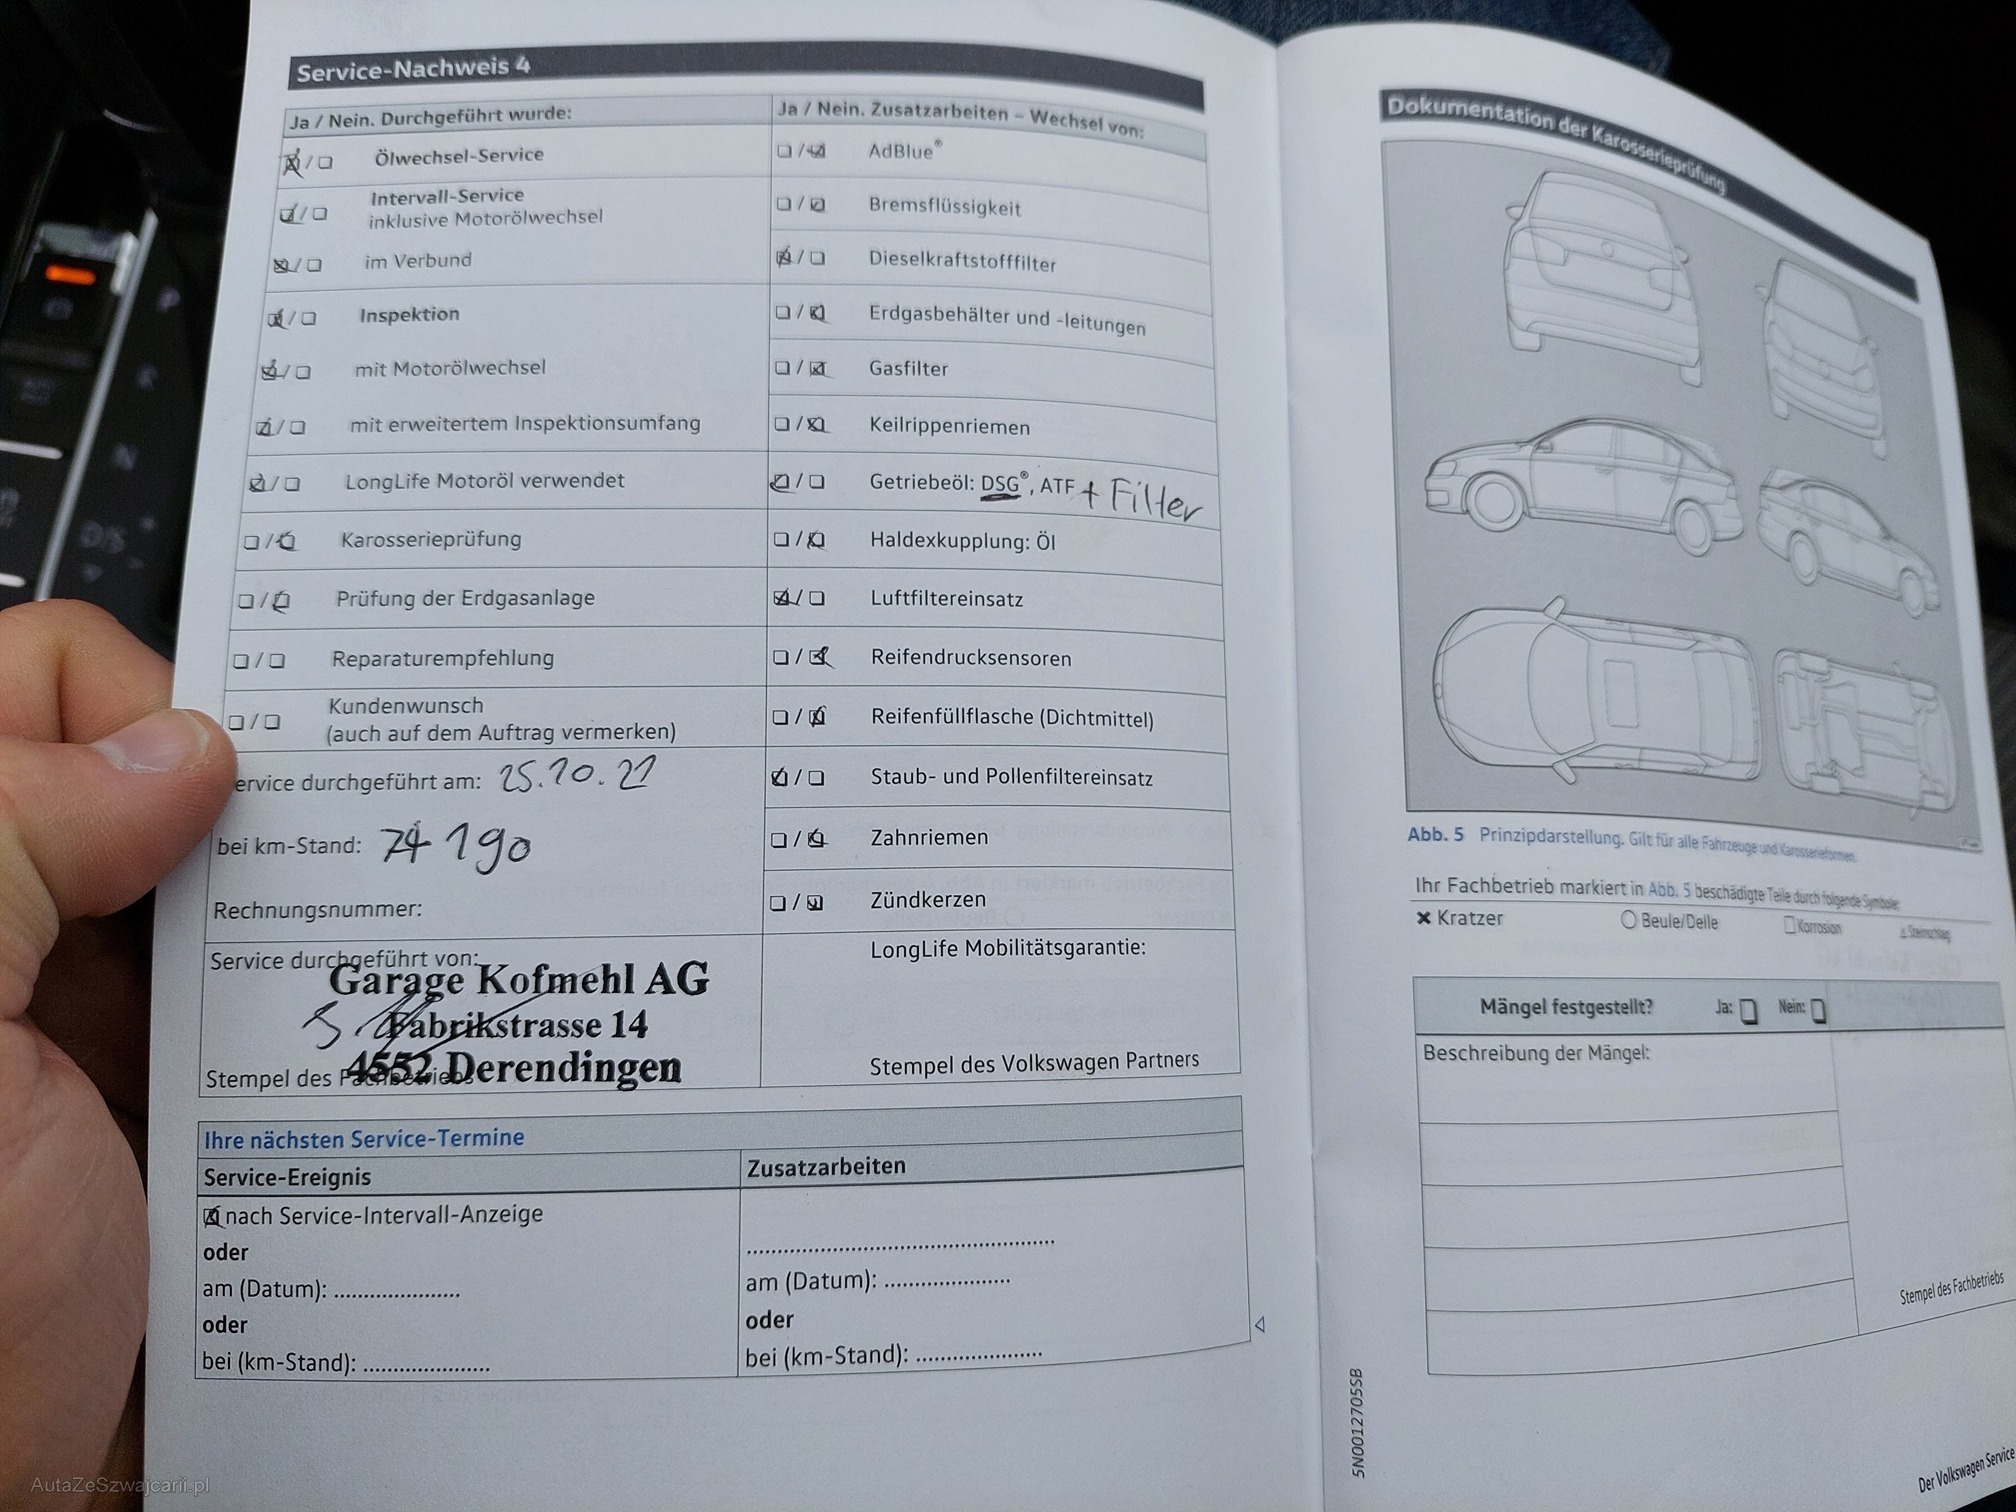 Service-Nachweis 4
Ja / Nein. Durchgeführt wurde:
Ölwechsel-Service
Intervall-Service
inklusive Motorölwechsel
im Verbund
Inspektion
mit Motorölwechsel
mit erweitertem Inspektionsumfang
LongLife Motoröl verwendet
Karosserieprüfung
Prüfung der Erdgasanlage
Reparaturempfehlung
Kundenwunsch
(auch auf dem Auftrag vermerken)
ervice durchgeführt am: 25.10.21
bei km-Stand: 74 190
Rechnungsnummer:
Service durchgeführt von:
Garage Kofmehl AG
Fabrikstrasse 14
4552 Derendingen
Stempel des Fachbetriebs
Ja / Nein. Zusatzarbeiten – Wechsel von:
AdBlue®
Bremsflüssigkeit
Dieselkraftstofffilter
Erdgasbehälter und -leitungen
Gasfilter
Keilrippenriemen
Getriebeöl: DSG®, ATF + Filter
Haldexkupplung: Öl
Luftfiltereinsatz
Reifendrucksensoren
Reifenfüllflasche (Dichtmittel)
Staub- und Pollenfiltereinsatz
Zahnriemen
Zündkerzen
LongLife Mobilitätsgarantie:
Stempel des Volkswagen Partners
Ihre nächsten Service-Termine
Service-Ereignis
nach Service-Intervall-Anzeige
oder
am (Datum): .....................
oder
bei (km-Stand): .....................
Zusatzarbeiten
...................................................
am (Datum): .....................
oder
bei (km-Stand): .....................
Dokumentation der Karosserieprüfung
Abb. 5 Prinzipdarstellung. Gilt für alle Fahrzeuge und Karosserieformen.
Ihr Fachbetrieb markiert in Abb. 5 beschädigte Teile durch folgende Symbole:
Kratzer
Beule/Delle
Korrosion
Steinschlag
Mängel festgestellt? Ja: Nein:
Beschreibung der Mängel:
Stempel des Fachbetriebs
5N0012705SB
Der Volkswagen Service
P
R
N
D/S
AutaZeSzwajcarii.pl